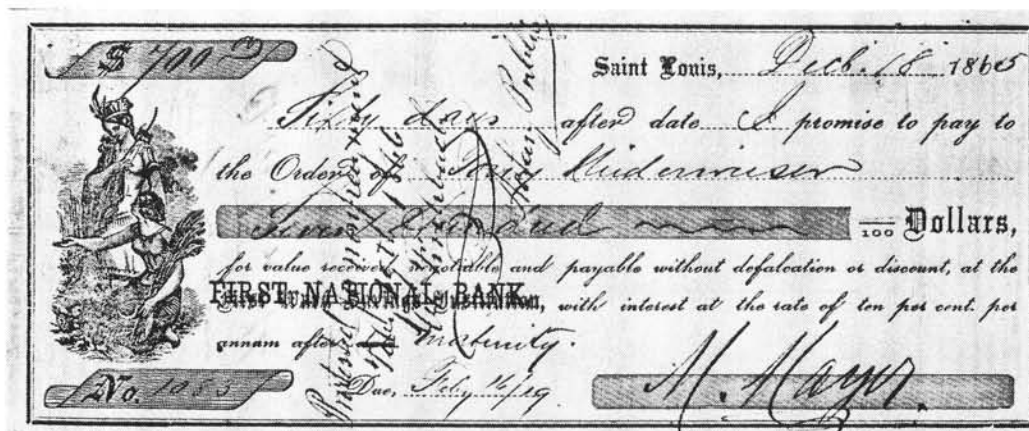 $ 700 00
Saint Louis, Decb. 18 1865
Sixty days after date I promise to pay to
the Order of Tony Niedermeiser
Seven Hundred Dollars,
100
for value received, negotiable and payable without defalcation or discount, at the
FIRST NATIONAL BANK, with interest at the rate of ten per cent. per
annum after date maturity.
No. 1053
Due, Feby 16/19
M. Mayer.